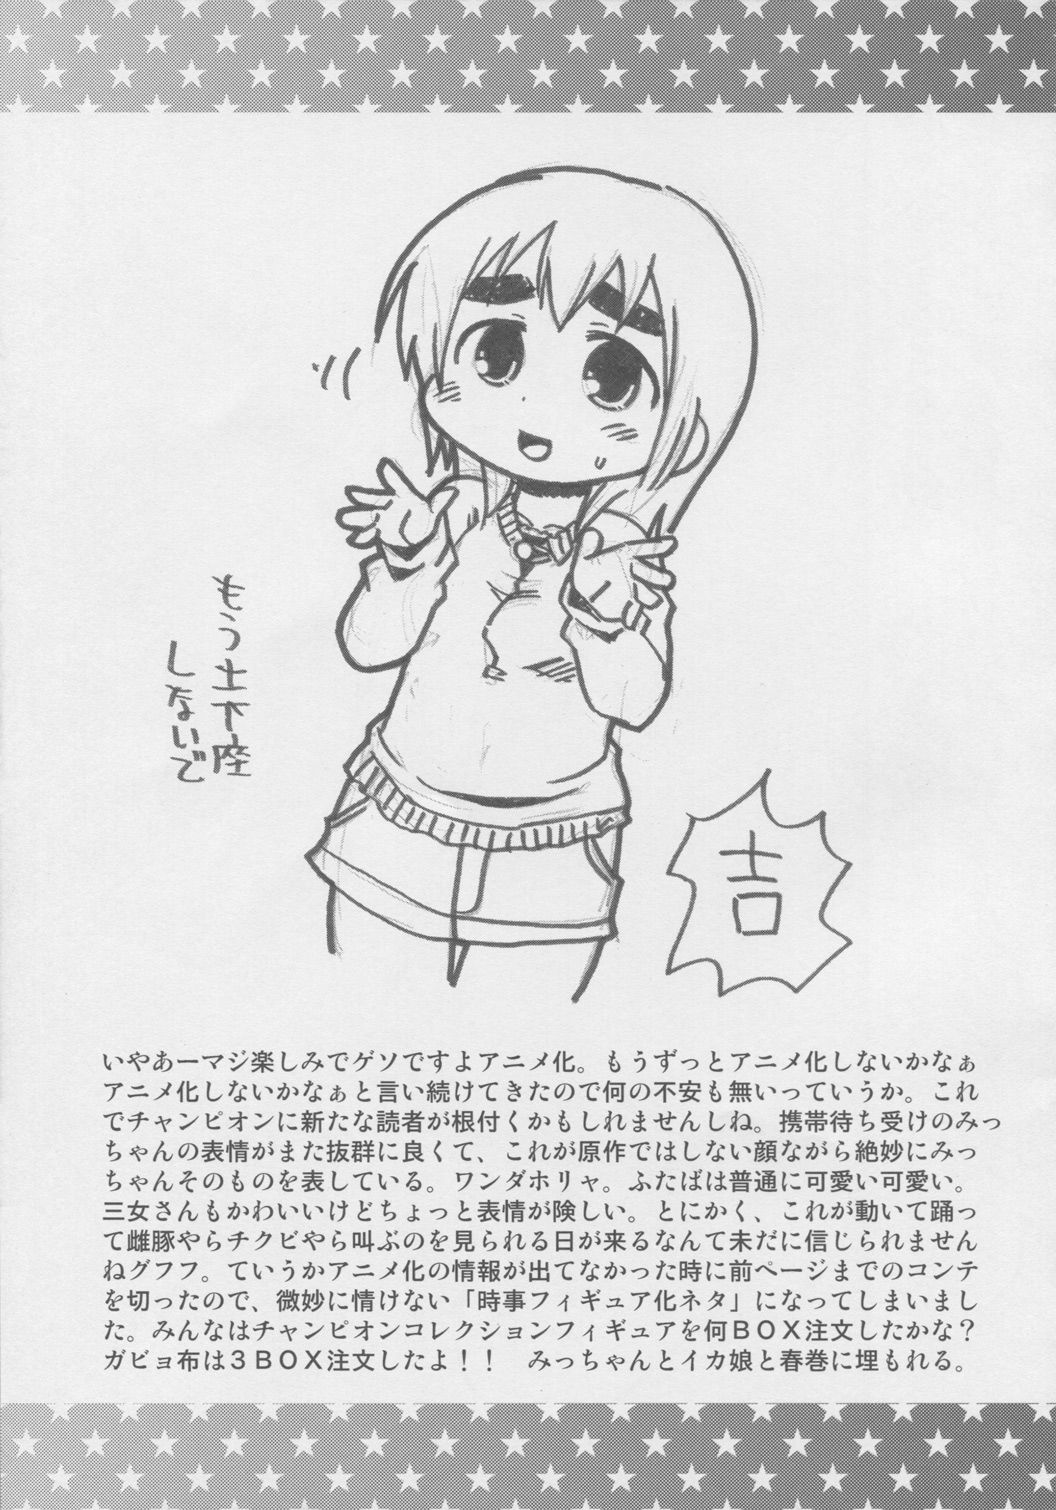 もう土下座
しないで
吉
いやあーマジ楽しみでゲソですよアニメ化。もうずっとアニメ化しないかなぁ
アニメ化しないかなぁと言い続けてきたので何の不安も無いっていうか。これ
でチャンピオンに新たな読者が根付くかもしれませんしね。携帯待ち受けのみっ
ちゃんの表情がまた抜群に良くて、これが原作ではしない顔ながら絶妙にみっ
ちゃんそのものを表している。ワンダホリャ。ふたばは普通に可愛い可愛い。
三女さんもかわいいけどちょっと表情が険しい。とにかく、これが動いて踊っ
て雌豚やらチクビやら叫ぶのを見られる日が来るなんて未だに信じられません
ねグフフ。ていうかアニメ化の情報が出てなかった時に前ページまでのコンテ
を切ったので、微妙に情けない「時事フィギュア化ネタ」になってしまいまし
た。みんなはチャンピオンコレクションフィギュアを何ＢＯＸ注文したかな？
ガビョ布は３ＢＯＸ注文したよ！！　みっちゃんとイカ娘と春巻に埋もれる。